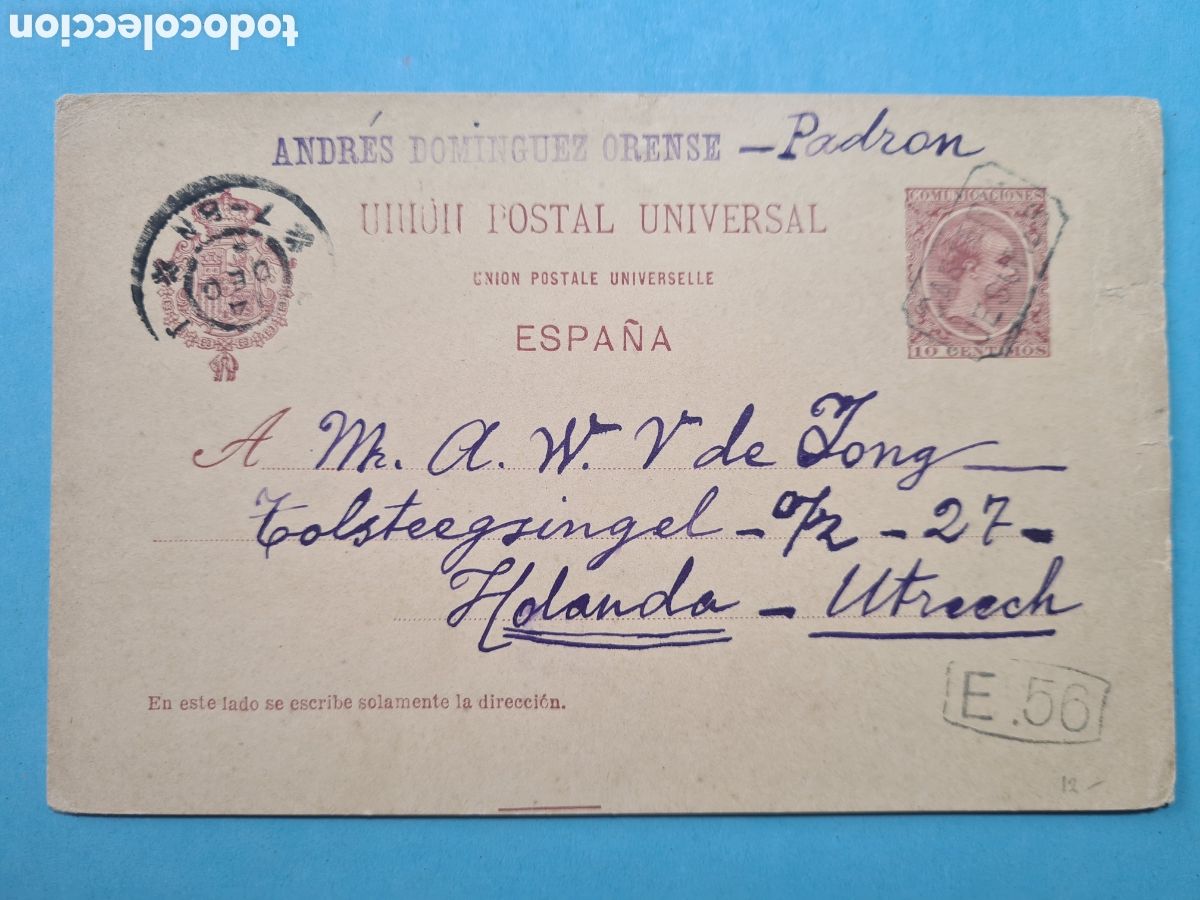 todocoleccion
ANDRÉS DOMINGUEZ ORENSE – Padron
UNIÓN POSTAL UNIVERSAL
UNION POSTALE UNIVERSELLE
ESPAÑA
COMUNICACIONES
10 CENTIMOS
7-8 N
DEC
A Mr. A. W. V de Jong
Tolsteegsingel - o/z - 27 -
Holanda - Utreech
En este lado se escribe solamente la dirección.
E.56
12 -